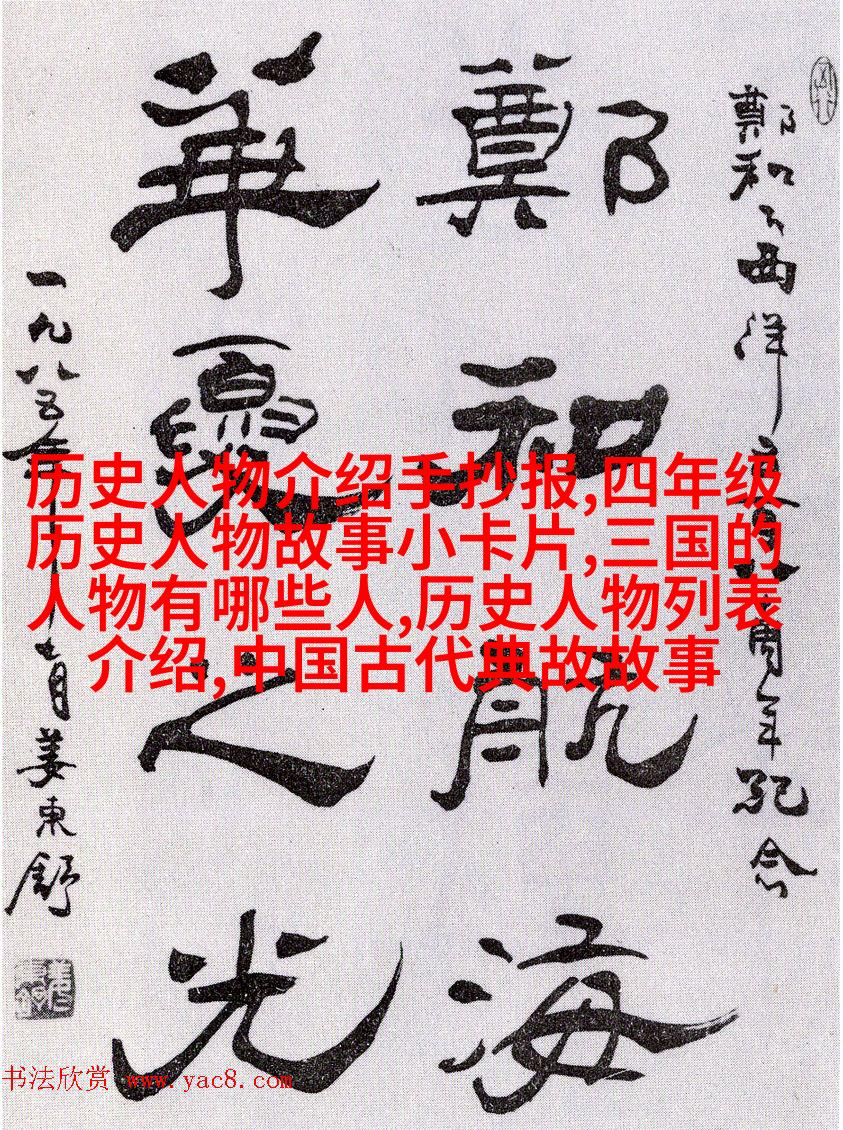 鄭和下西洋周年紀念
鄭和航海
華夏之光
一九八五年月姜東舒
历史人物介绍手抄报,四年级
历史人物故事小卡片,三国的
人物有哪些人,历史人物列表
介绍,中国古代典故故事
书法欣赏 www.yac8.com